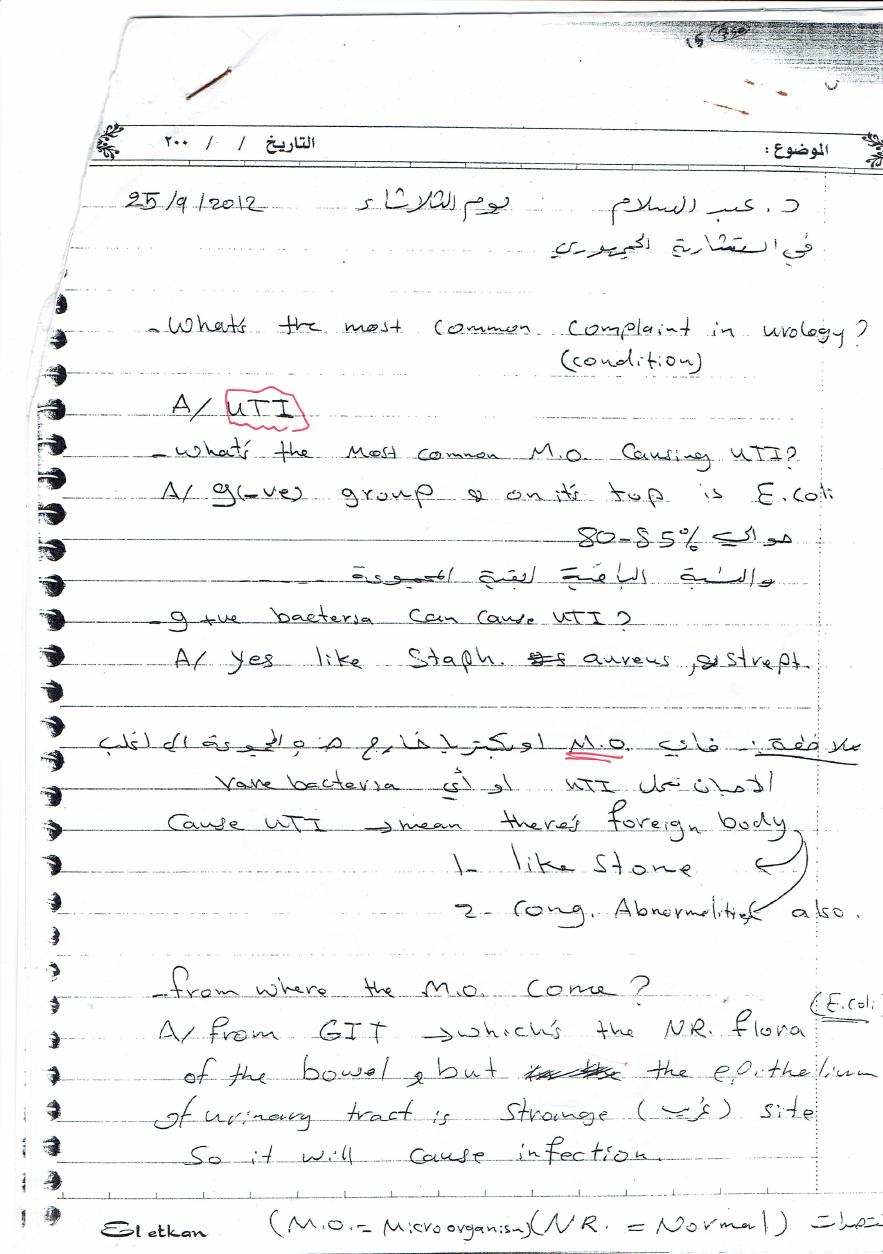 15
الموضوع : التاريخ / / ٢٠٠
د. عبد السلام يوم الثلاثاء 25/9/2012
في استشارية الجمهوري
- What's the most common complaint in urology?
(condition)
A/ UTI
- What's the Most common M.O. Causing UTI?
A/ g(-ve) group & on it's top is E.coli
حوالي 80-85%
والنسبة الباقية لبقية المجموعة
- g +ve bacteria Can Cause UTI?
A/ yes like Staph. aureus, & strept.
ملاحظة :- فأي M.O. او بكتريا خارج هذه المجموعة الـ اغلب
الاحيان تعمل UTI او أي rare bacteria
Cause UTI → mean there's foreign body
1- like Stone
2- Cong. Abnormalities also.
- from where the M.O. Come?
(E.coli
A/ from GIT → which's the NR. flora
of the bowel & but the epithelium
of urinary tract is strange (غريب) site
So it will cause infection.
Eletkan (M.O. = Microorganism) (NR. = Normal)